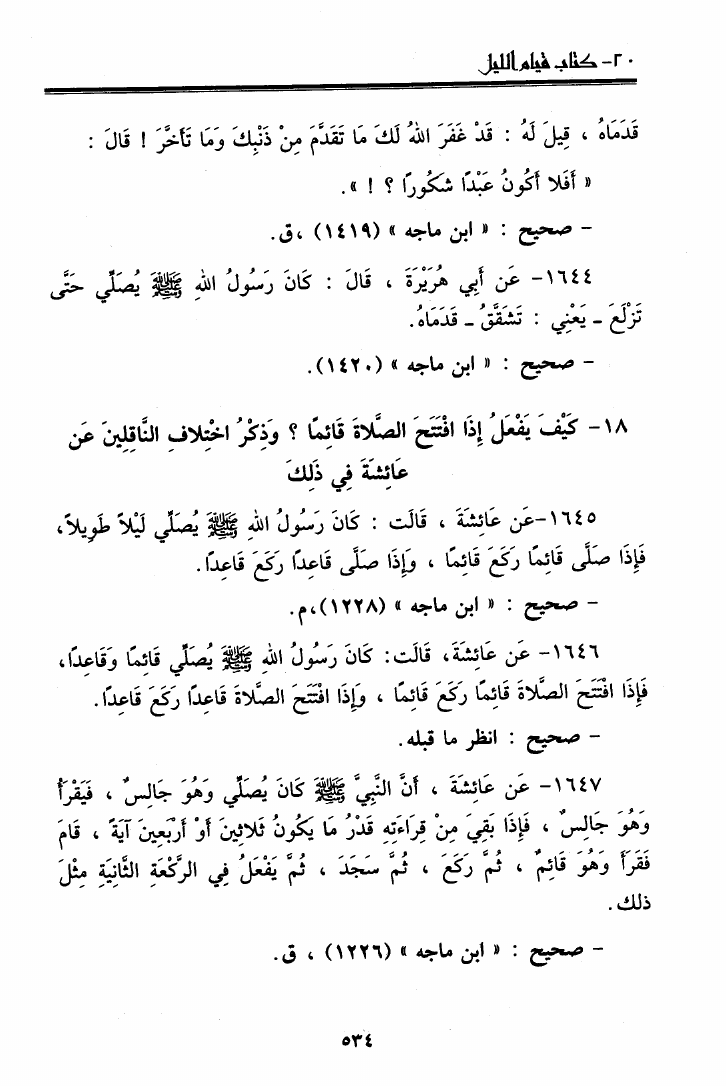 ٢٠- كتاب قيام الليل
قَدَمَاهُ ، قِيلَ لَهُ : قَدْ غَفَرَ اللهُ لَكَ مَا تَقَدَّمَ مِنْ ذَنْبِكَ وَمَا تَأَخَّرَ ! قَالَ :
« أَفَلا أَكُونُ عَبْدًا شَكُورًا ؟ ! ».
- صحيح : « ابن ماجه » (١٤١٩) ،ق.
١٦٤٤- عَن أَبِي هُرَيْرَةَ ، قَالَ : كَانَ رَسُولُ اللهِ ﷺ يُصَلِّي حَتَّى
تَزْلَعَ ـ يَعْنِي : تَشَقَّقُ ـ قَدَمَاهُ.
- صحيح : « ابن ماجه » (١٤٢٠).
١٨- كَيْفَ يَفْعَلُ إِذَا افْتَتَحَ الصَّلاةَ قَائِمًا ؟ وَذِكْرُ اخْتِلافِ النَّاقِلِينَ عَن
عَائِشَةَ فِي ذَلِكَ
١٦٤٥-عَن عَائِشَةَ ، قَالَت : كَانَ رَسُولُ اللهِ ﷺ يُصَلِّي لَيْلاً طَوِيلاً،
فَإِذَا صَلَّى قَائِمًا رَكَعَ قَائِمًا ، وَإِذَا صَلَّى قَاعِدًا رَكَعَ قَاعِدًا.
- صحيح : « ابن ماجه » (١٢٢٨)،م.
١٦٤٦- عَن عَائِشَةَ، قَالَت: كَانَ رَسُولُ اللهِ ﷺ يُصَلِّي قَائِمًا وَقَاعِدًا،
فَإِذَا افْتَتَحَ الصَّلاةَ قَائِمًا رَكَعَ قَائِمًا ، وَإِذَا افْتَتَحَ الصَّلاةَ قَاعِدًا رَكَعَ قَاعِدًا.
- صحيح : انظر ما قبله.
١٦٤٧- عَن عَائِشَةَ ، أَنَّ النَّبِيَّ ﷺ كَانَ يُصَلِّي وَهُوَ جَالِسٌ ، فَيَقْرَأُ
وَهُوَ جَالِسٌ ، فَإِذَا بَقِيَ مِنْ قِرَاءَتِهِ قَدْرُ مَا يَكُونُ ثَلاثِينَ أَوْ أَرْبَعِينَ آيَةً ، قَامَ
فَقَرَأَ وَهُوَ قَائِمٌ ، ثُمَّ رَكَعَ ، ثُمَّ سَجَدَ ، ثُمَّ يَفْعَلُ فِي الرَّكْعَةِ الثَّانِيَةِ مِثْلَ
ذلك.
- صحيح : « ابن ماجه » (١٢٢٦) ، ق.
٥٣٤